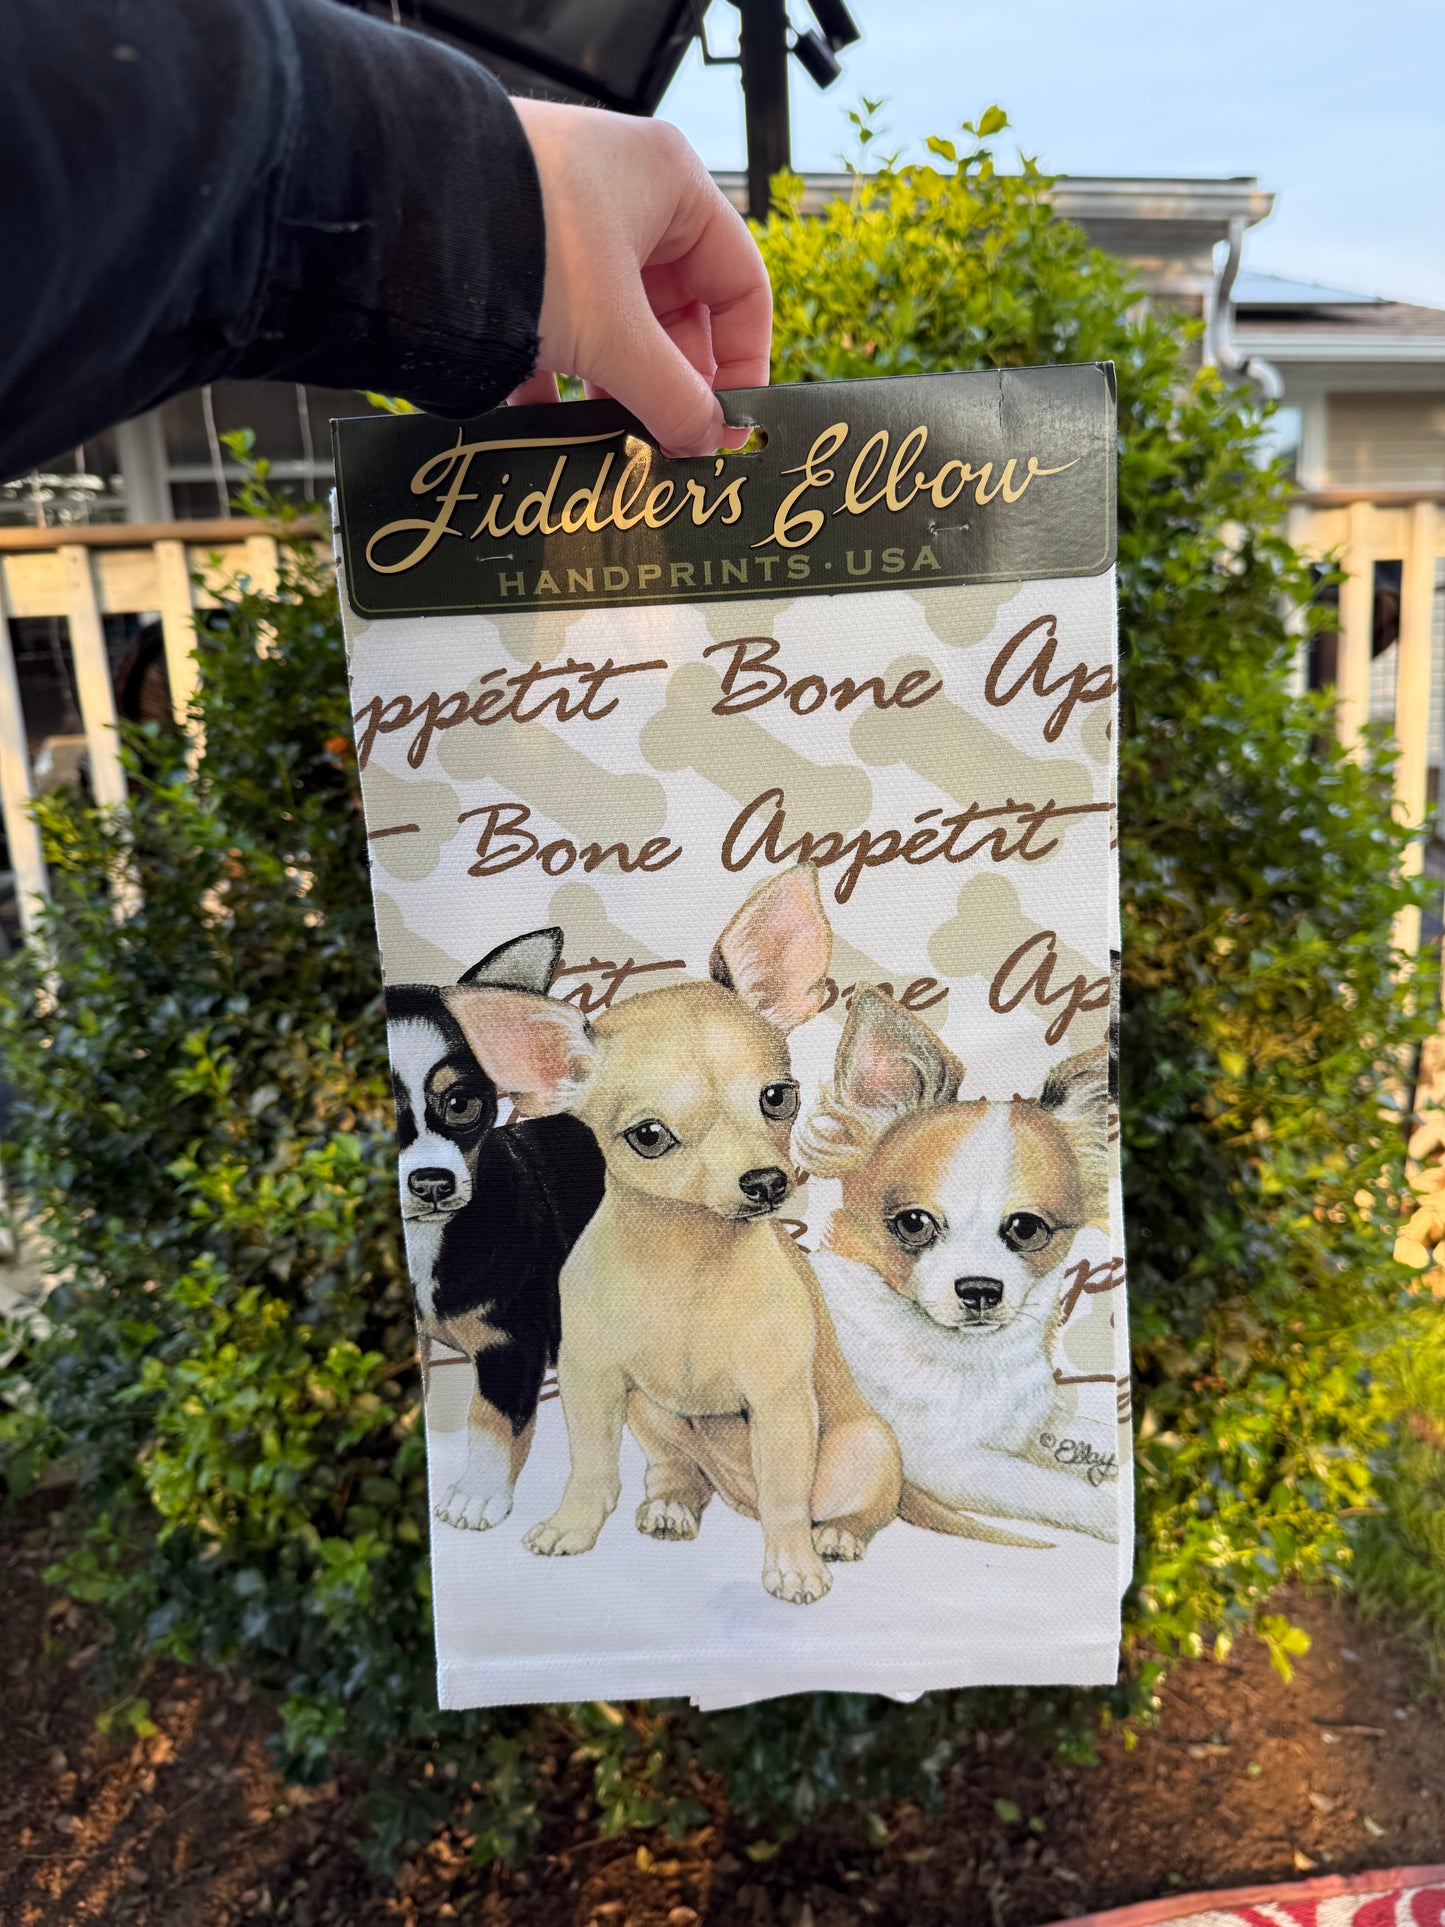 Fiddler's Elbow
HANDPRINTS · USA
ppétit Bone Ap
Bone Appétit
tit ne Ap
p
© Elkay